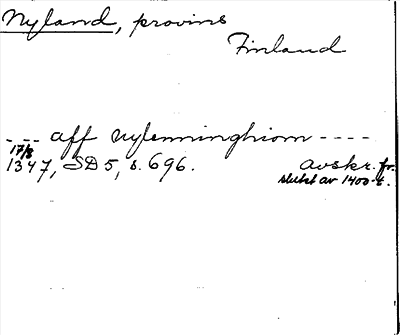 Nyland, provins
Finland
- - - aff nylenninghiom - - - -
17/8
1347, SD 5, s. 696. avskr. fr.
slutet av 1400-t.